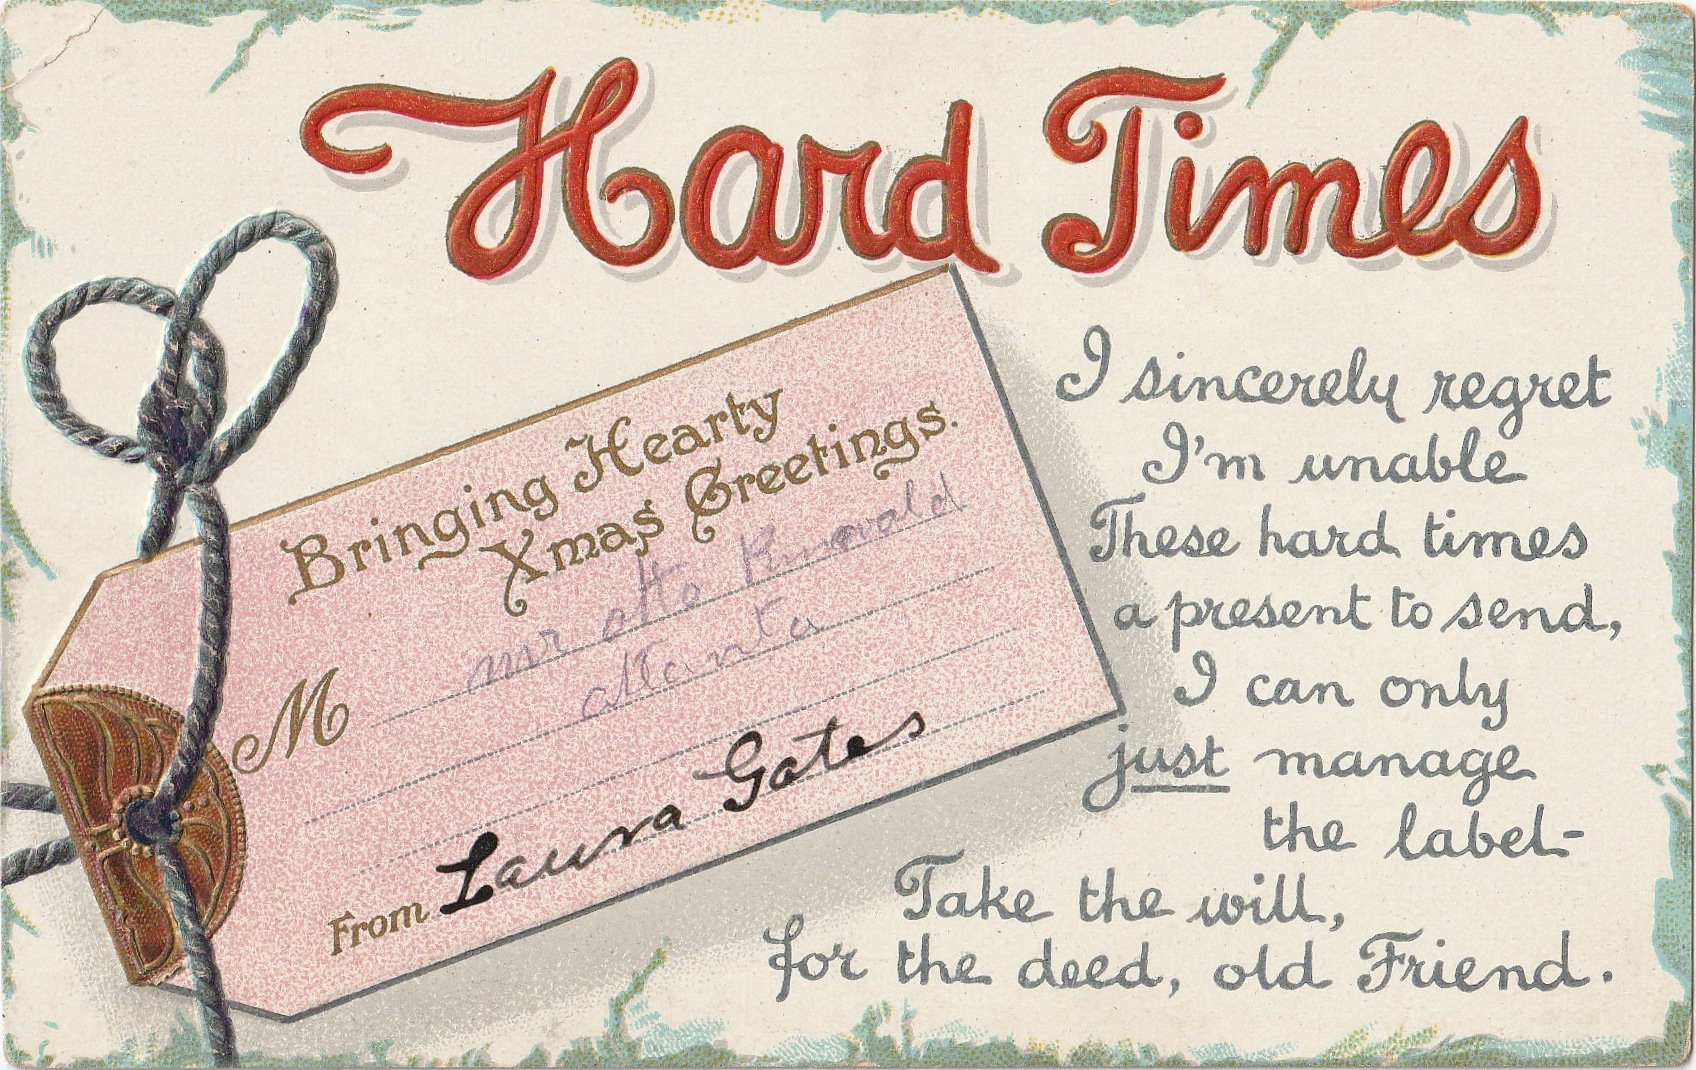 Hard Times
Bringing Hearty
Xmas Greetings.
M
mr otto
atlanta
From Laura Gates
I sincerely regret
I'm unable
These hard times
a present to send,
I can only
just manage
the label-
Take the will,
for the deed, old Friend.